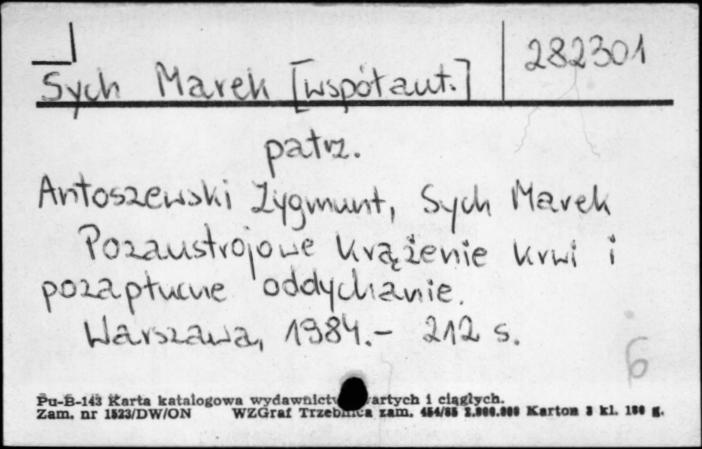 Sych Marek [współaut.] 282301
patrz.
Antoszewski Zygmunt, Sych Marek
Pozaustrojowe krążenie krwi i
pozapłucne oddychanie.
Warszawa, 1984.- 212 s.
6
Pu-B-143 Karta katalogowa wydawnictw zwartych i ciągłych.
Zam. nr 1523/DW/ON WZGraf Trzebnica zam. 454/85 2.000.000 Karton 3 kl. 180 g.